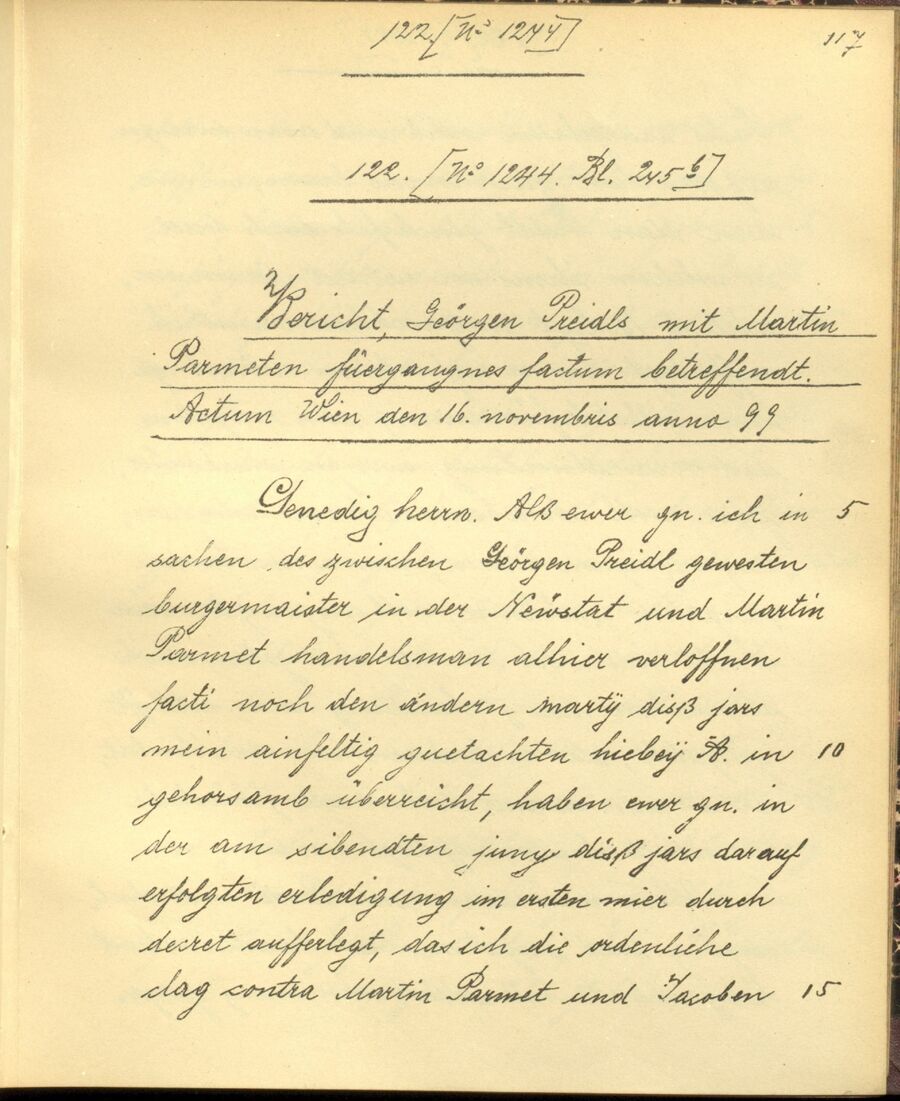 122. [No 1244]
117
122. [No 1244. Bl. 245b]
2/
Bericht, Geörgen Preidls mit Martin
Parmeten füergangnes factum betreffendt.
Actum Wien den 16. novembris anno 99
Genedig herrn. Alß ewer gn. ich in 5
sachen des zwischen Geörgen Preidl gewesten
burgermaister in der Newstat und Martin
Parmet handelsman alhier verloffnen
facti noch den andern martÿ disß jars
mein ainfeltig guetachten hiebeÿ A. in 10
gehorsamb überreicht, haben ewer gn. in
der am sibendten juny disß jars darauf
erfolgten erledigung im ersten mier durch
decret aufferlegt, das ich die ordenliche
clag contra Martin Parmet und Jacoben 15